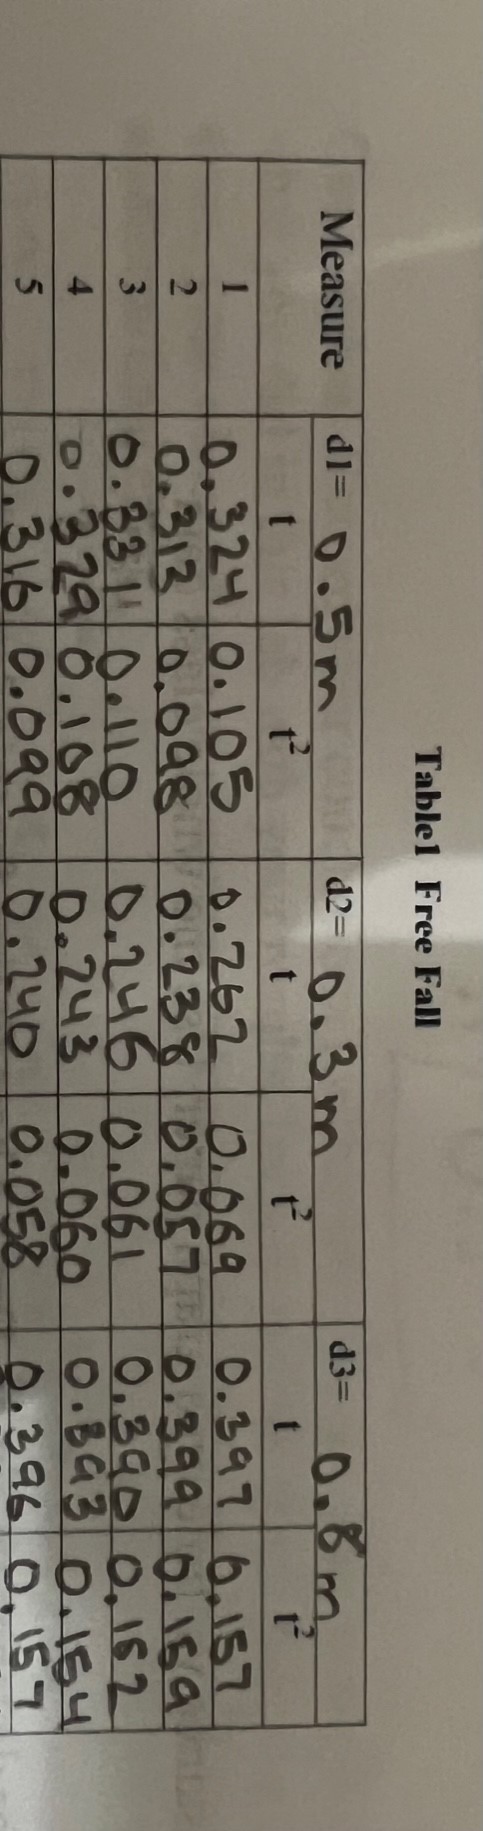 Table1 Free Fall
Measure d1= 0.5m d2= 0.3m d3= 0.8m
t t² t t² t t²
1 0.324 0.105 0.262 0.069 0.397 0.157
2 0.313 0.098 0.238 0.057 0.399 0.159
3 0.331 0.110 0.246 0.061 0.390 0.152
4 0.329 0.108 0.243 0.060 0.393 0.154
5 0.316 0.099 0.240 0.058 0.396 0.157